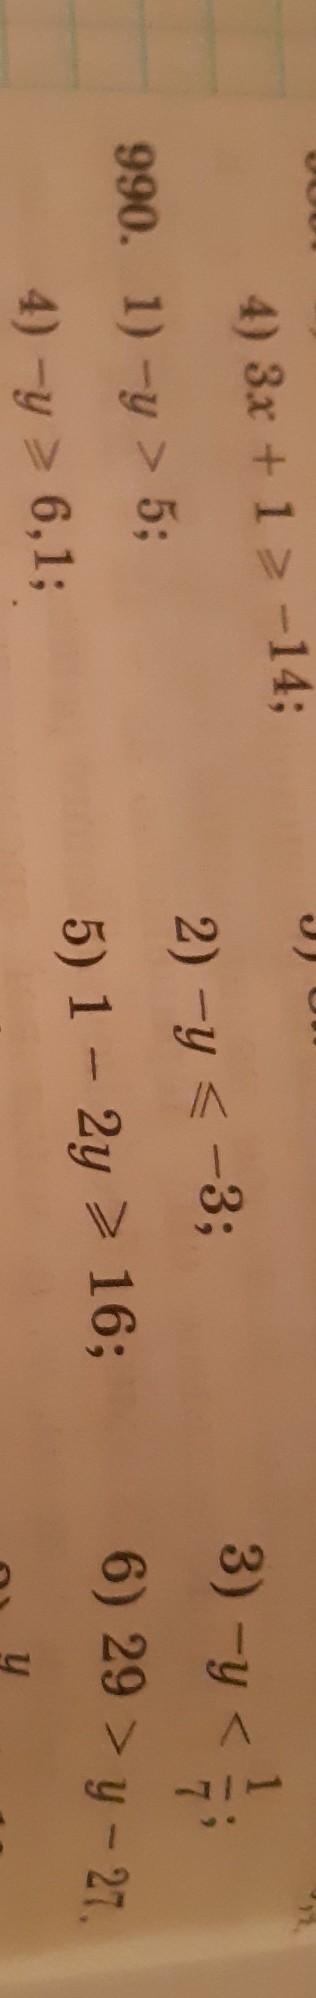 4) 3x + 1 ⩾ −14;
990. 1) −y > 5; 2) −y ⩽ −3; 3) −y < 1/7;
4) −y ⩾ 6,1; 5) 1 − 2y ⩾ 16; 6) 29 > y − 27.
y